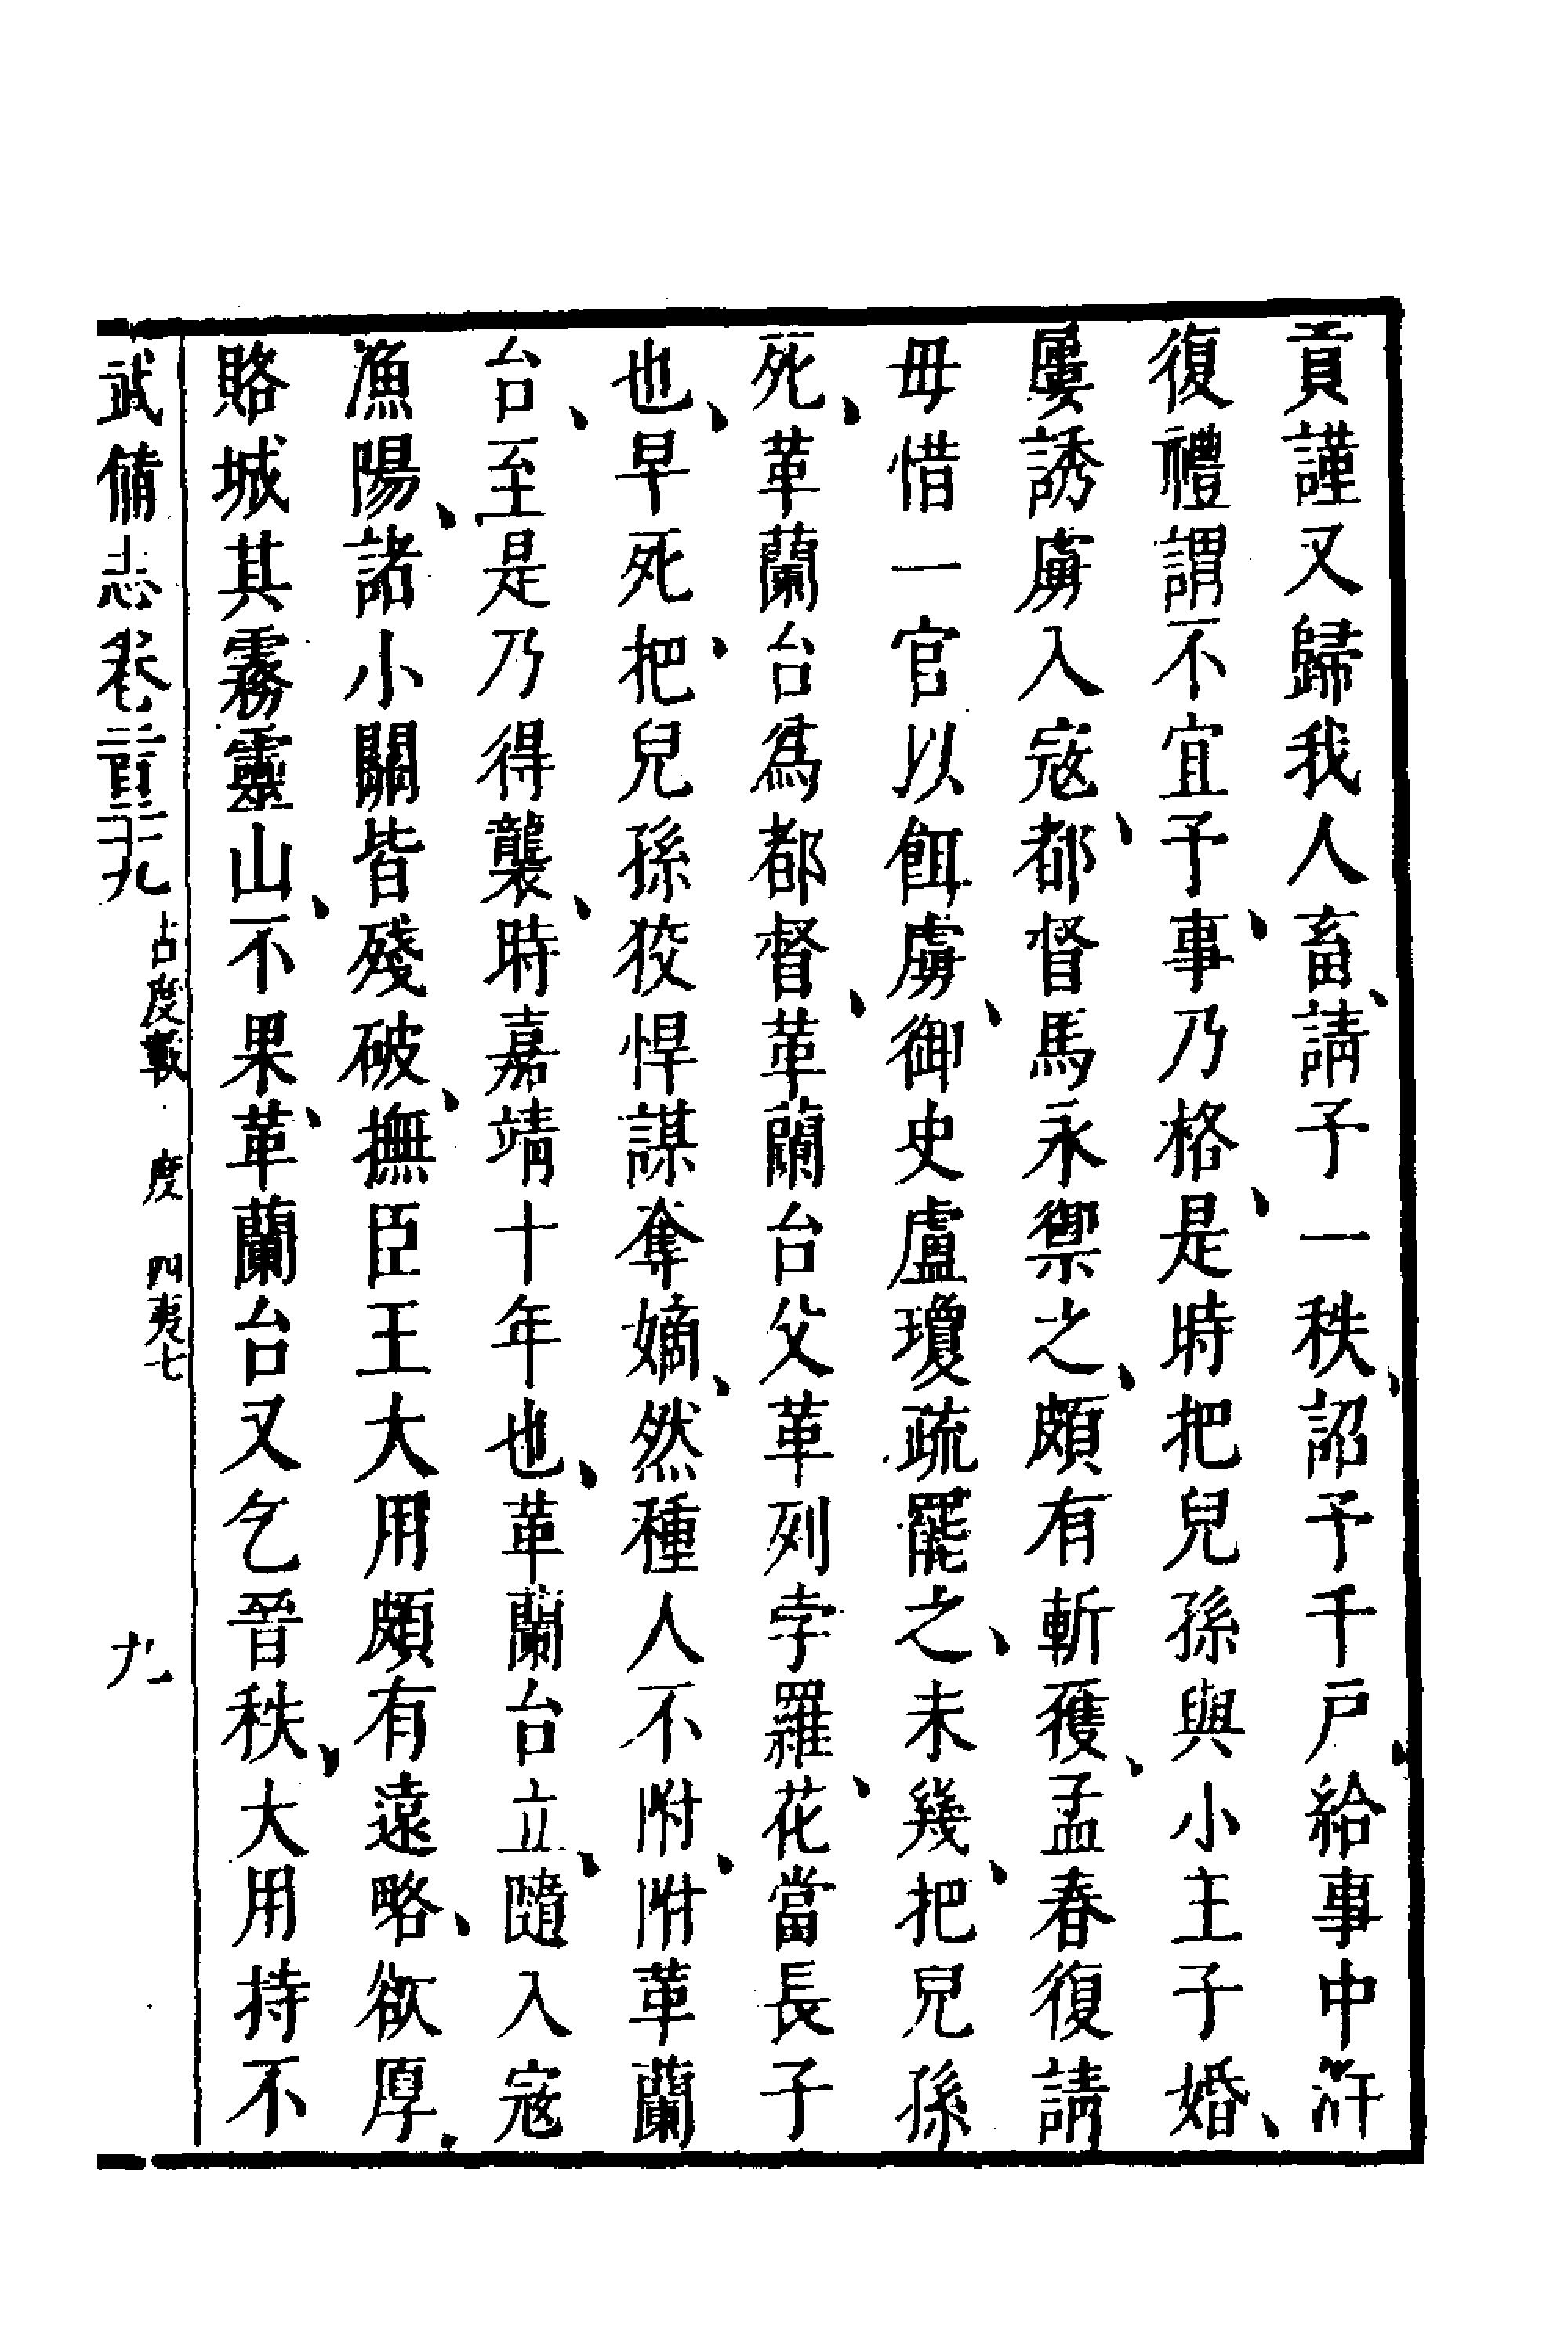 貢謹又歸我人畜、請予一秩、詔予千戸、給事中許
復禮謂不宜予、事乃格、是時把兒孫與小王子婚、
屢誘虜入寇、都督馬永禦之、頗有斬獲、孟春復請
毋惜一官以餌虜、御史盧瓊疏罷之、未幾、把兒孫
死、革蘭台爲都督、革蘭台父革列孛羅、花當長子
也、早死、把兒孫狡悍謀奪嫡、然種人不附、附革蘭
台、至是乃得襲、時嘉靖十年也、革蘭台立、隨入寇
漁陽、諸小關皆殘破、撫臣王大用頗有遠略、欲厚、
賂城其霧靈山、不果、革蘭台又乞晉秩、大用持不
武備志卷二百二十九 占度載 度 四夷七 九